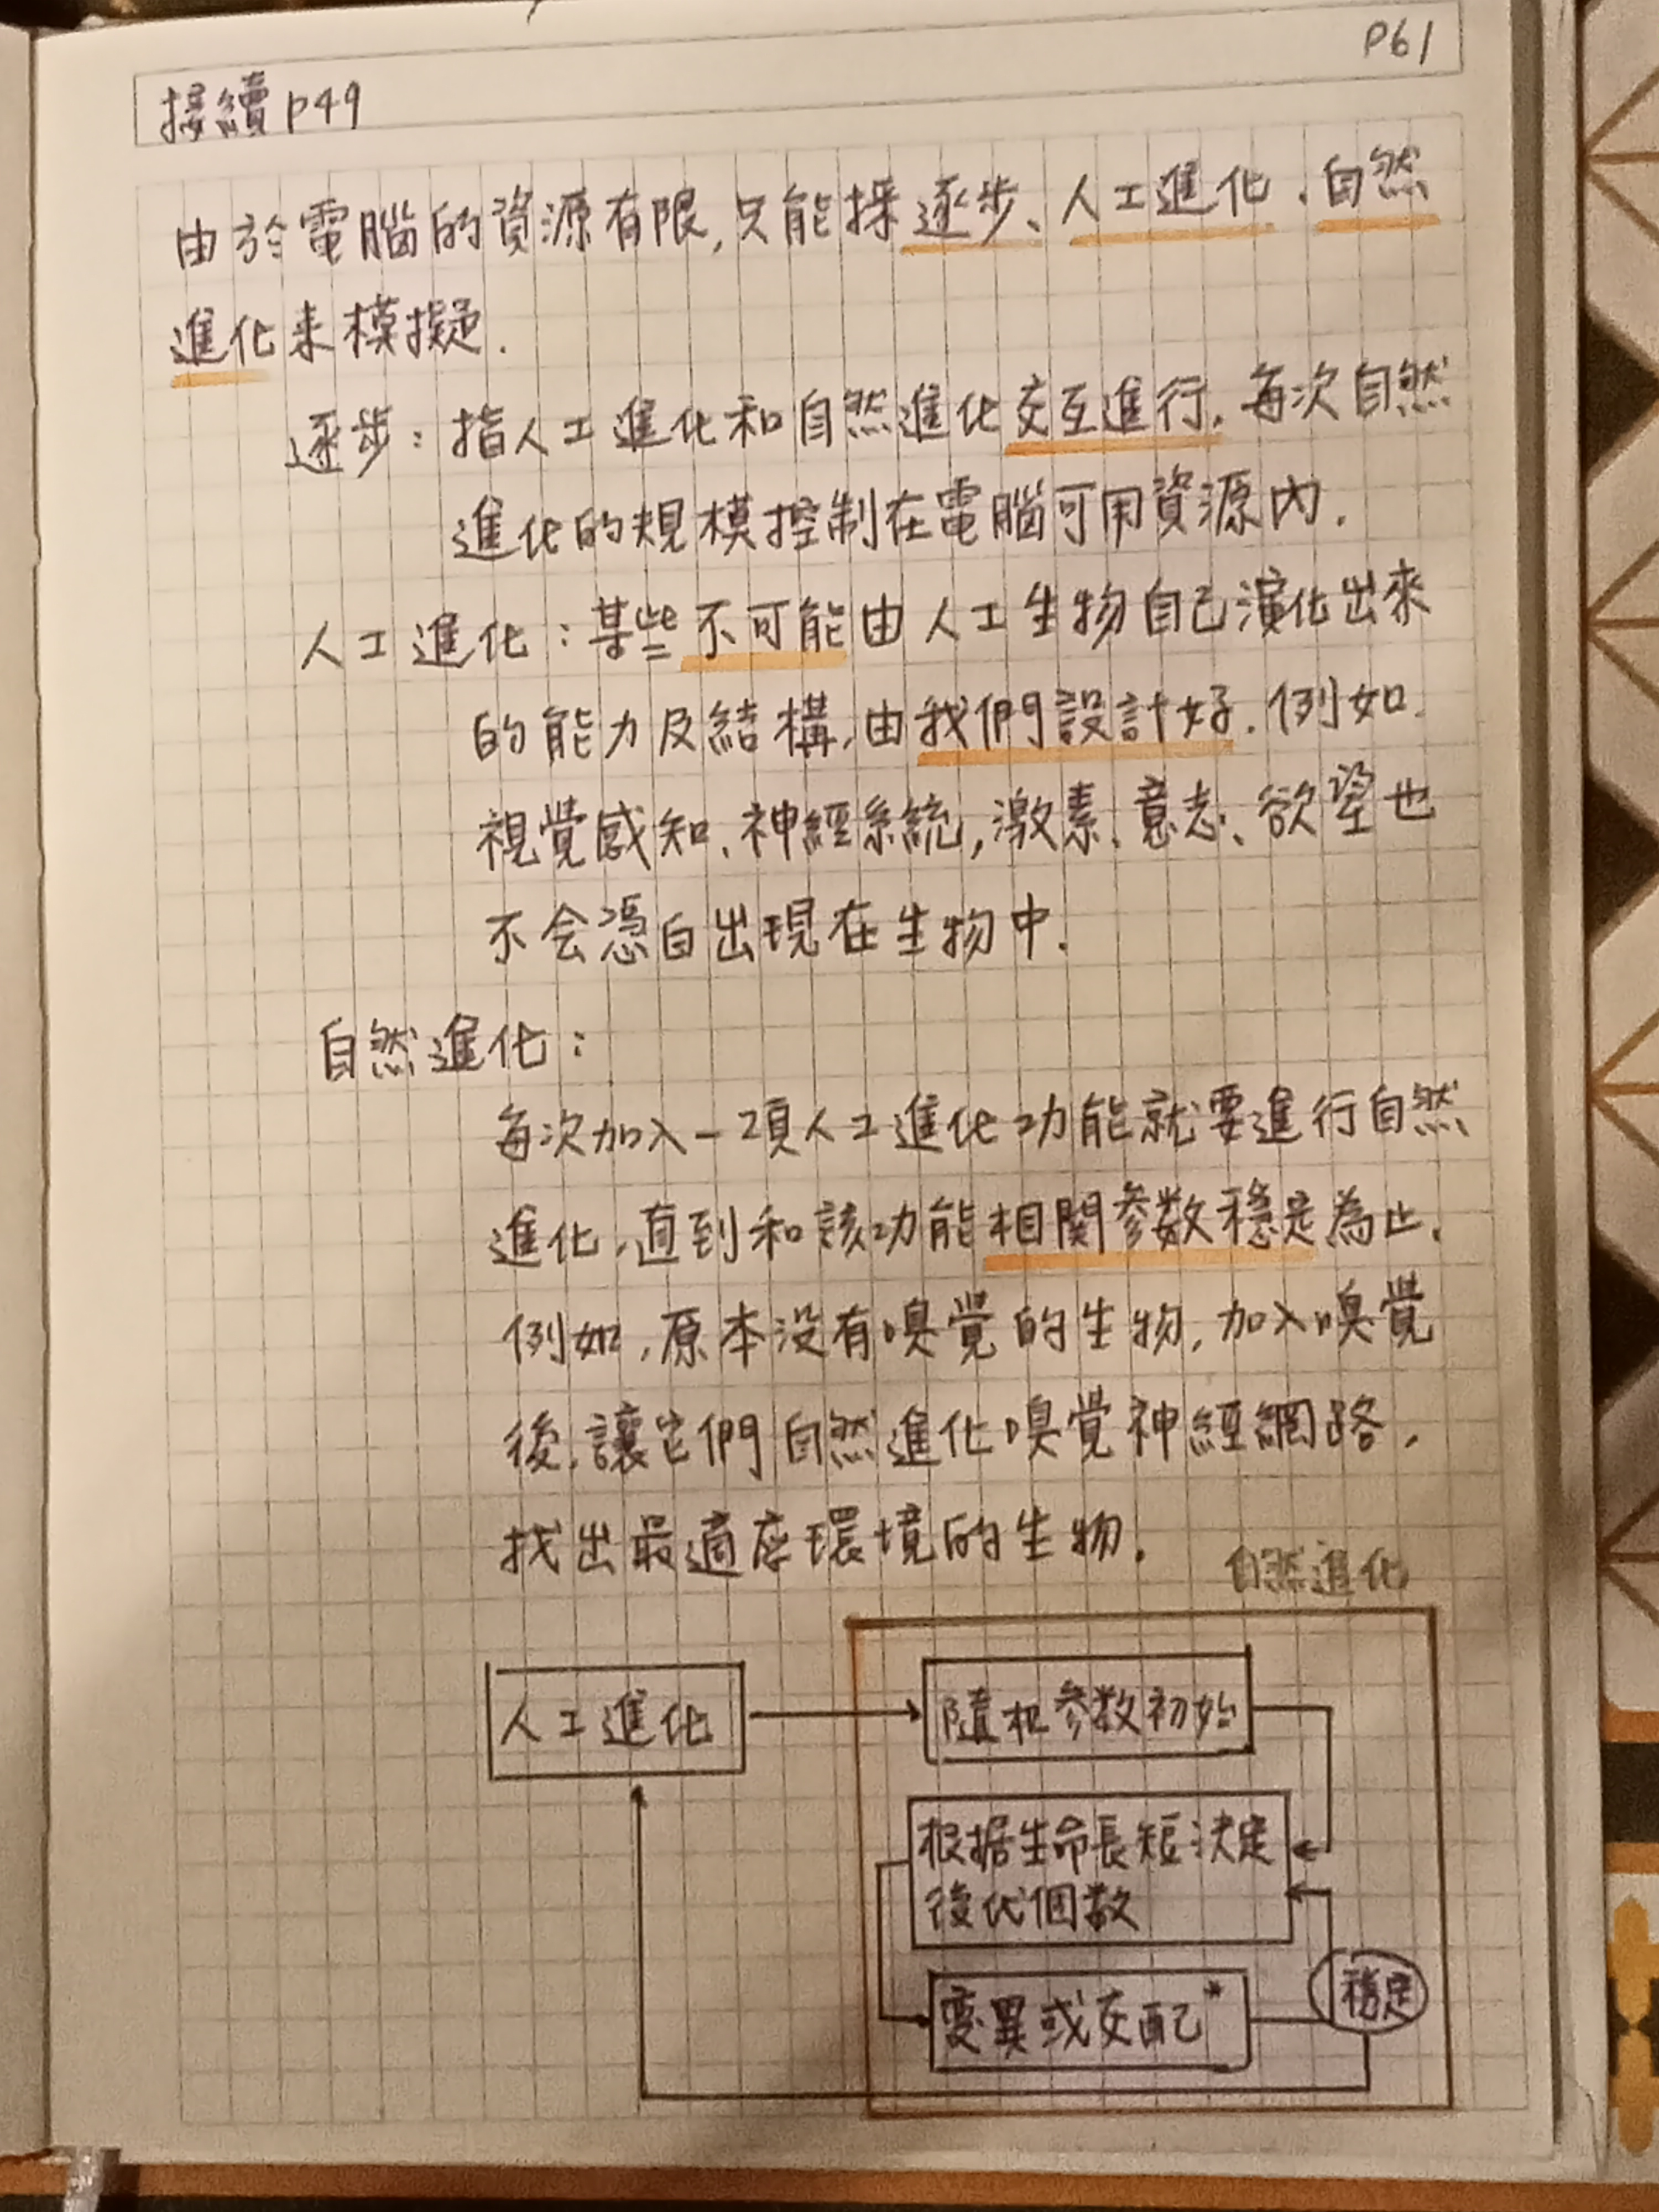 接續P49
P61
由於電腦的資源有限,只能採逐步、人工進化、自然
進化来模擬.
逐步:指人工進化和自然進化交互進行.每次自然
進化的規模控制在電腦可用資源內.
人工進化:某些不可能由人工生物自己演化出來
的能力及結構,由我們設計好.例如.
視覺感知、神經系統,激素、意志、欲望也
不会憑白出現在生物中.
自然進化:
每次加入一項人工進化功能就要進行自然
進化,直到和該功能相関參数穩定為止.
例如,原本没有嗅覺的生物,加入嗅覺
後,讓它們自然進化嗅覺神經網路,
找出最適應環境的生物.
自然進化
人工進化
隨机參数初始
根据生命長短決定
後代個数
變異或交配*
穩定